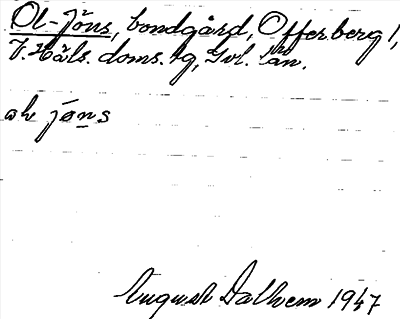 Ol-Jöns, bondgård, Offerberg 1,
V. Häls. doms. tg, Gvl. län.
ɷh jö̱ns
August Dalhem 1947